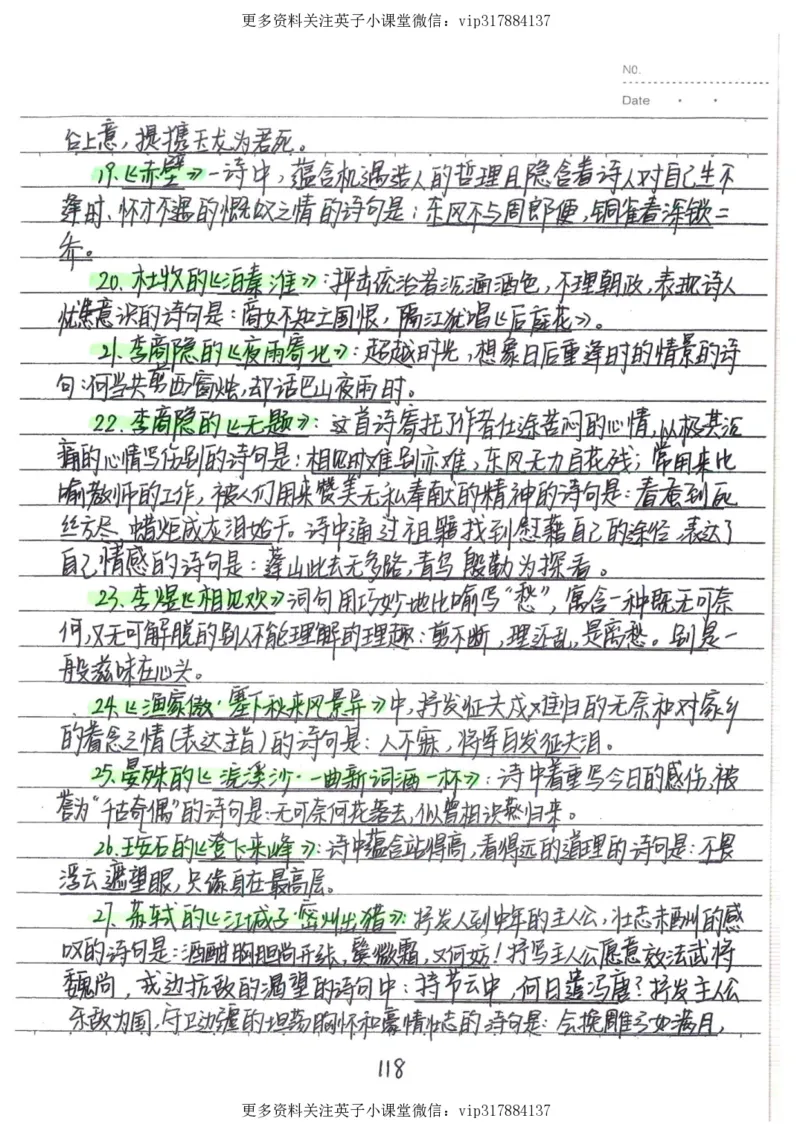 更多资料关注英子小课堂微信：vip317884137
NO.
Date
台上意，提携玉龙为君死。
19.《赤壁》一诗中，蕴含机遇造人的哲理且隐含着诗人对自己生不
逢时、怀才不遇的慨叹之情的诗句是：东风不与周郎便，铜雀春深锁二
乔。
20.杜牧的《泊秦淮》：抨击统治者沉湎酒色，不理朝政，表现诗人
忧患意识的诗句是：商女不知亡国恨，隔江犹唱《后庭花》。
21.李商隐的《夜雨寄北》：超越时光，想象日后重逢时的情景的诗
句：何当共剪西窗烛，却话巴山夜雨时。
22.李商隐的《无题》：这首诗寄托了作者仕途苦闷的心情，从极其沉
痛的心情写伤别的诗句是：相见时难别亦难，东风无力百花残；常用来比
喻教师的工作，被人们用来赞美无私奉献的精神的诗句是：春蚕到死
丝方尽，蜡炬成灰泪始干。诗中通过祖籍找到慰藉自己的途径，表达了
自己情感的诗句是：蓬山此去无多路，青鸟殷勤为探看。
23.李煜《相见欢》词句用巧妙地比喻写“愁”，寓含一种既无可奈
何，又无可解脱的别人不能理解的理趣：剪不断，理还乱，是离愁。别是一
般滋味在心头。
24.《渔家傲·塞下秋来风景异》中，抒发征夫戍难归的无奈和对家乡
的眷念之情(表达主旨)的诗句是：人不寐，将军白发征夫泪。
25.晏殊的《浣溪沙·一曲新词酒一杯》：诗中着重写今日的感伤，被
誉为“千古奇偶”的诗句是：无可奈何花落去，似曾相识燕归来。
26.王安石的《登飞来峰》：诗中蕴含站得高，看得远的道理的诗句是：不畏
浮云遮望眼，只缘身在最高层。
27.苏轼的《江城子·密州出猎》：抒发人到中年的主人公，壮志未酬的感
叹的诗句是：酒酣胸胆尚开张，鬓微霜，又何妨！抒写主人公愿意效法武将
魏尚，戎边抗敌的渴望的诗句中：持节云中，何日遣冯唐？抒发主人公
杀敌为国，守卫边疆的坦荡胸怀和豪情壮志的诗句是：会挽雕弓如满月，
118
更多资料关注英子小课堂微信：vip317884137